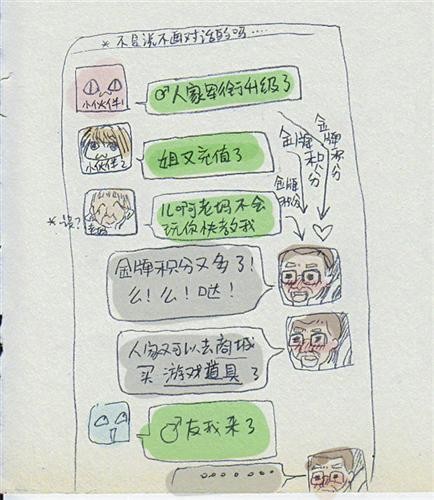 *不是说不画对话的吗....
小伙伴1
♂人家军衔升级了
金牌积分
金牌积分
金牌积分
小伙伴2
姐又充值了
*误?
老妈
儿啊老妈不会
玩你快教我
金牌积分又多了!
么!么!哒!
人家又可以去商城
买游戏道具了
♂友我来了
.......